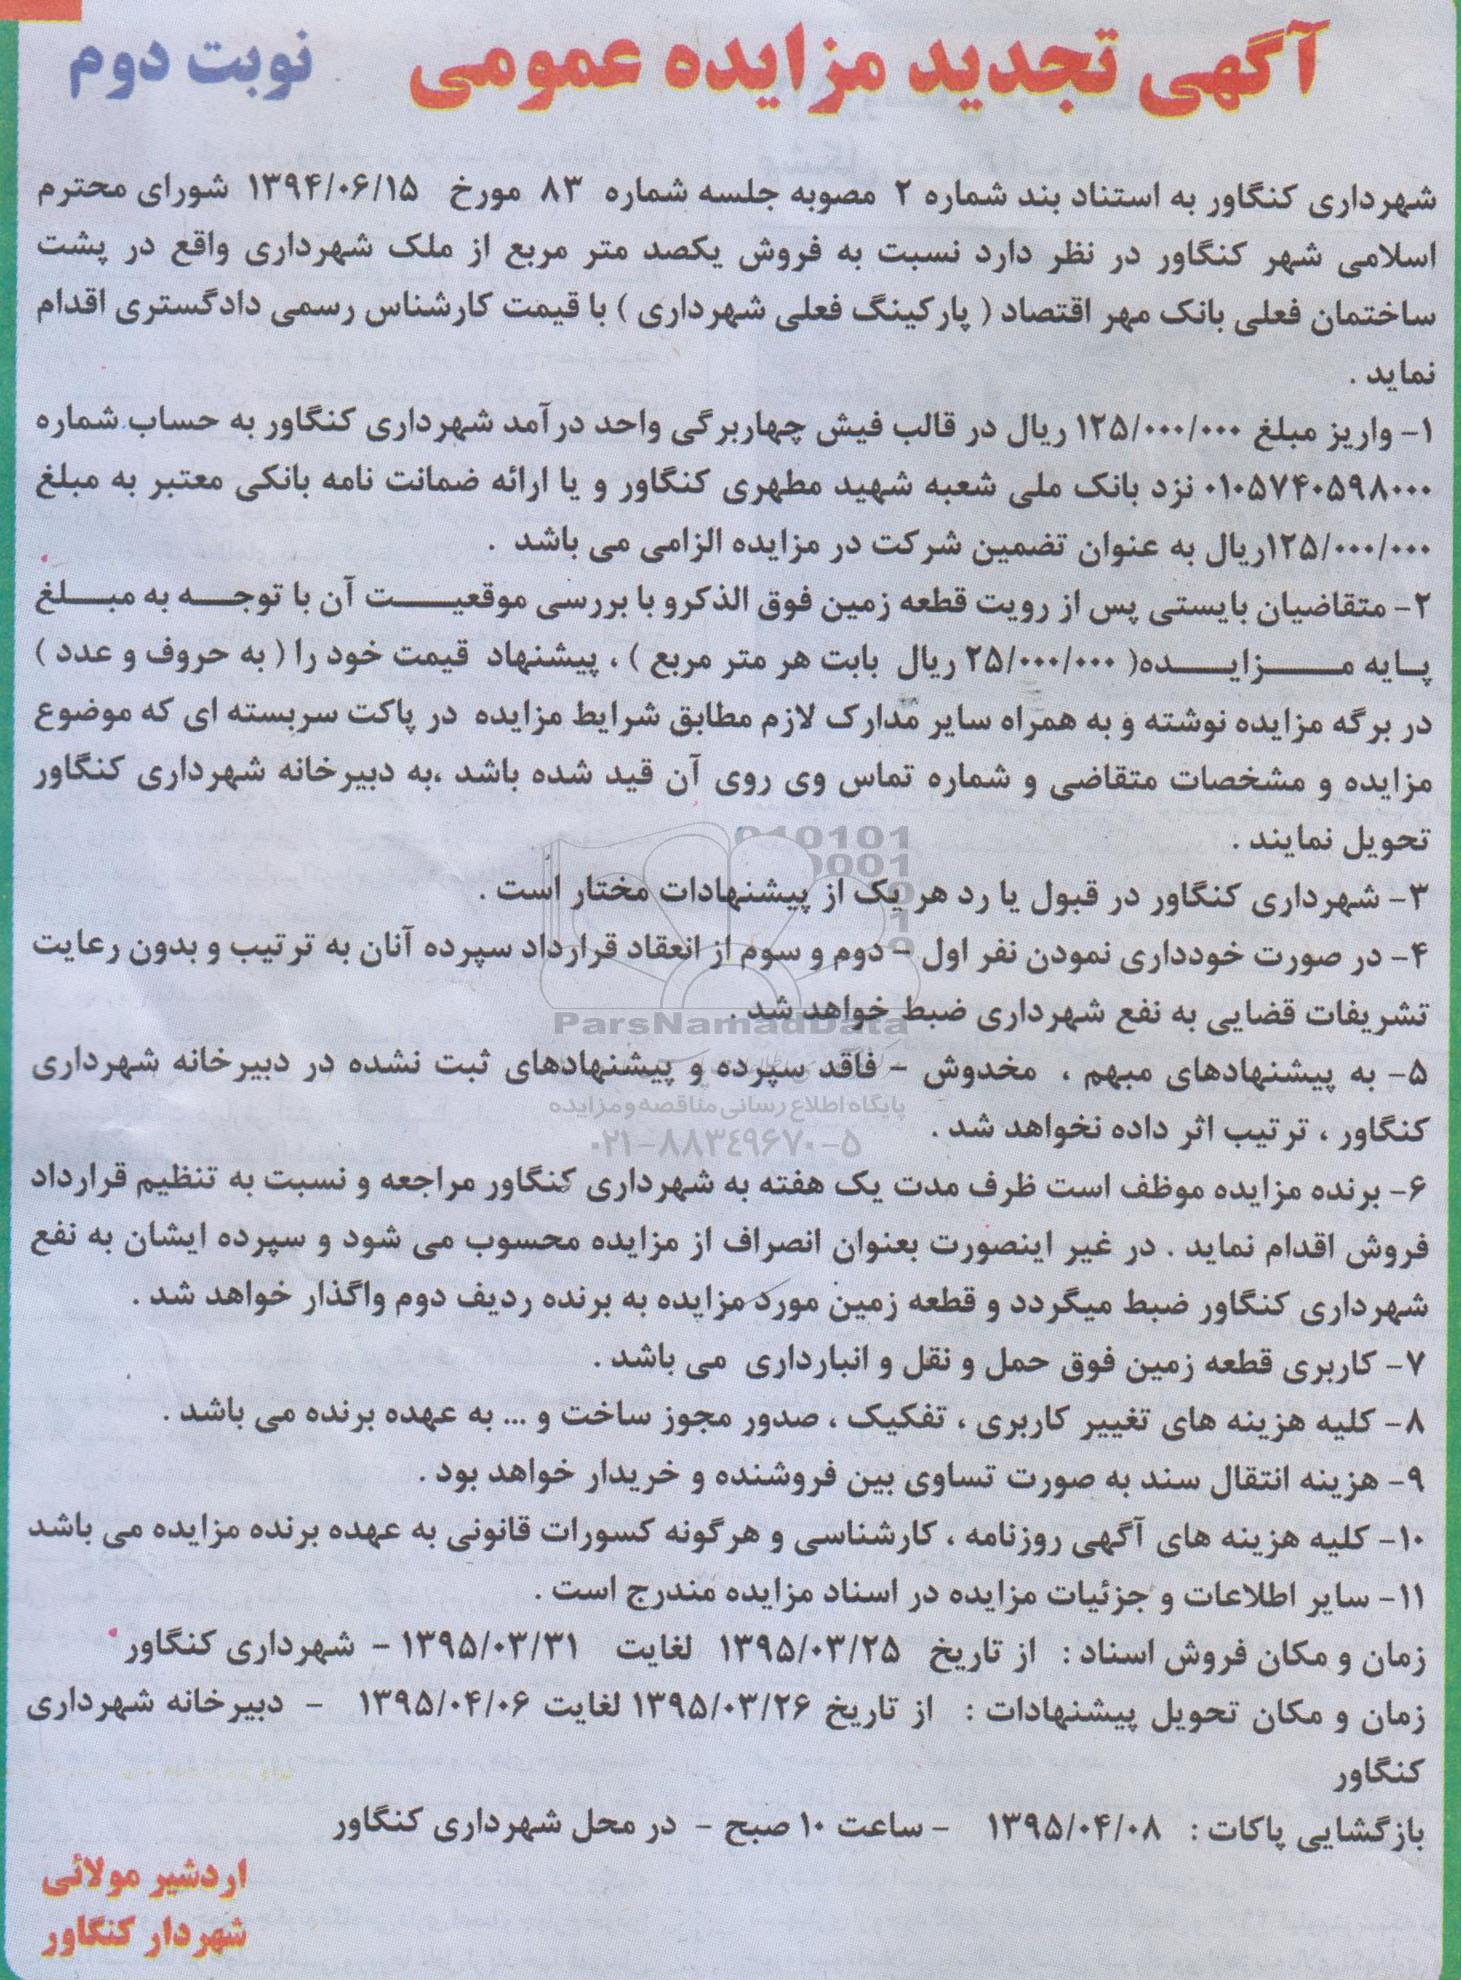 آگهی تجدید مزایده عمومی
نوبت دوم
شهرداری کنگاور به استناد بند شماره ۲ مصوبه جلسه شماره ۸۳ مورخ ۱۳۹۴/۰۶/۱۵ شورای محترم
اسلامی شهر کنگاور در نظر دارد نسبت به فروش یکصد متر مربع از ملک شهرداری واقع در پشت
ساختمان فعلی بانک مهر اقتصاد ( پارکینگ فعلی شهرداری ) با قیمت کارشناس رسمی دادگستری اقدام
نماید .
۱- واریز مبلغ ۱۲۵/۰۰۰/۰۰۰ ریال در قالب فیش چهاربرگی واحد درآمد شهرداری کنگاور به حساب شماره
۰۱۰۵۷۴۰۵۹۸۰۰۰ نزد بانک ملی شعبه شهید مطهری کنگاور و یا ارائه ضمانت نامه بانکی معتبر به مبلغ
۱۲۵/۰۰۰/۰۰۰ریال به عنوان تضمین شرکت در مزایده الزامی می باشد .
۲- متقاضیان بایستی پس از رویت قطعه زمین فوق الذکرو با بررسی موقعیـــــت آن با توجـــه به مبـــلغ
پــایه مـــــزایـــــده( ۲۵/۰۰۰/۰۰۰ ریال بابت هر متر مربع ) ، پیشنهاد قیمت خود را ( به حروف و عدد )
در برگه مزایده نوشته و به همراه سایر مدارک لازم مطابق شرایط مزایده در پاکت سربسته ای که موضوع
مزایده و مشخصات متقاضی و شماره تماس وی روی آن قید شده باشد ،به دبیرخانه شهرداری کنگاور
تحویل نمایند .
۳- شهرداری کنگاور در قبول یا رد هر یک از پیشنهادات مختار است .
۴- در صورت خودداری نمودن نفر اول - دوم و سوم از انعقاد قرارداد سپرده آنان به ترتیب و بدون رعایت
تشریفات قضایی به نفع شهرداری ضبط خواهد شد .
ParsNamadData
۵- به پیشنهادهای مبهم ، مخدوش - فاقد سپرده و پیشنهادهای ثبت نشده در دبیرخانه شهرداری
پایگاه اطلاع رسانی مناقصه و مزایده
کنگاور ، ترتیب اثر داده نخواهد شد .
۰۲۱-۸۸۳۴۹۶۷۰-۵
۶- برنده مزایده موظف است ظرف مدت یک هفته به شهرداری کنگاور مراجعه و نسبت به تنظیم قرارداد
فروش اقدام نماید . در غیر اینصورت بعنوان انصراف از مزایده محسوب می شود و سپرده ایشان به نفع
شهرداری کنگاور ضبط میگردد و قطعه زمین مورد مزایده به برنده ردیف دوم واگذار خواهد شد .
۷- کاربری قطعه زمین فوق حمل و نقل و انبارداری می باشد .
۸- کلیه هزینه های تغییر کاربری ، تفکیک ، صدور مجوز ساخت و ... به عهده برنده می باشد .
۹- هزینه انتقال سند به صورت تساوی بین فروشنده و خریدار خواهد بود .
۱۰- کلیه هزینه های آگهی روزنامه ، کارشناسی و هرگونه کسورات قانونی به عهده برنده مزایده می باشد
۱۱- سایر اطلاعات و جزئیات مزایده در اسناد مزایده مندرج است .
زمان و مکان فروش اسناد : از تاریخ ۱۳۹۵/۰۳/۲۵ لغایت ۱۳۹۵/۰۳/۳۱ - شهرداری کنگاور
زمان و مکان تحویل پیشنهادات : از تاریخ ۱۳۹۵/۰۳/۲۶ لغایت ۱۳۹۵/۰۴/۰۶ - دبیرخانه شهرداری
کنگاور
بازگشایی پاکات : ۱۳۹۵/۰۴/۰۸ - ساعت ۱۰ صبح - در محل شهرداری کنگاور
اردشیر مولائی
شهردار کنگاور